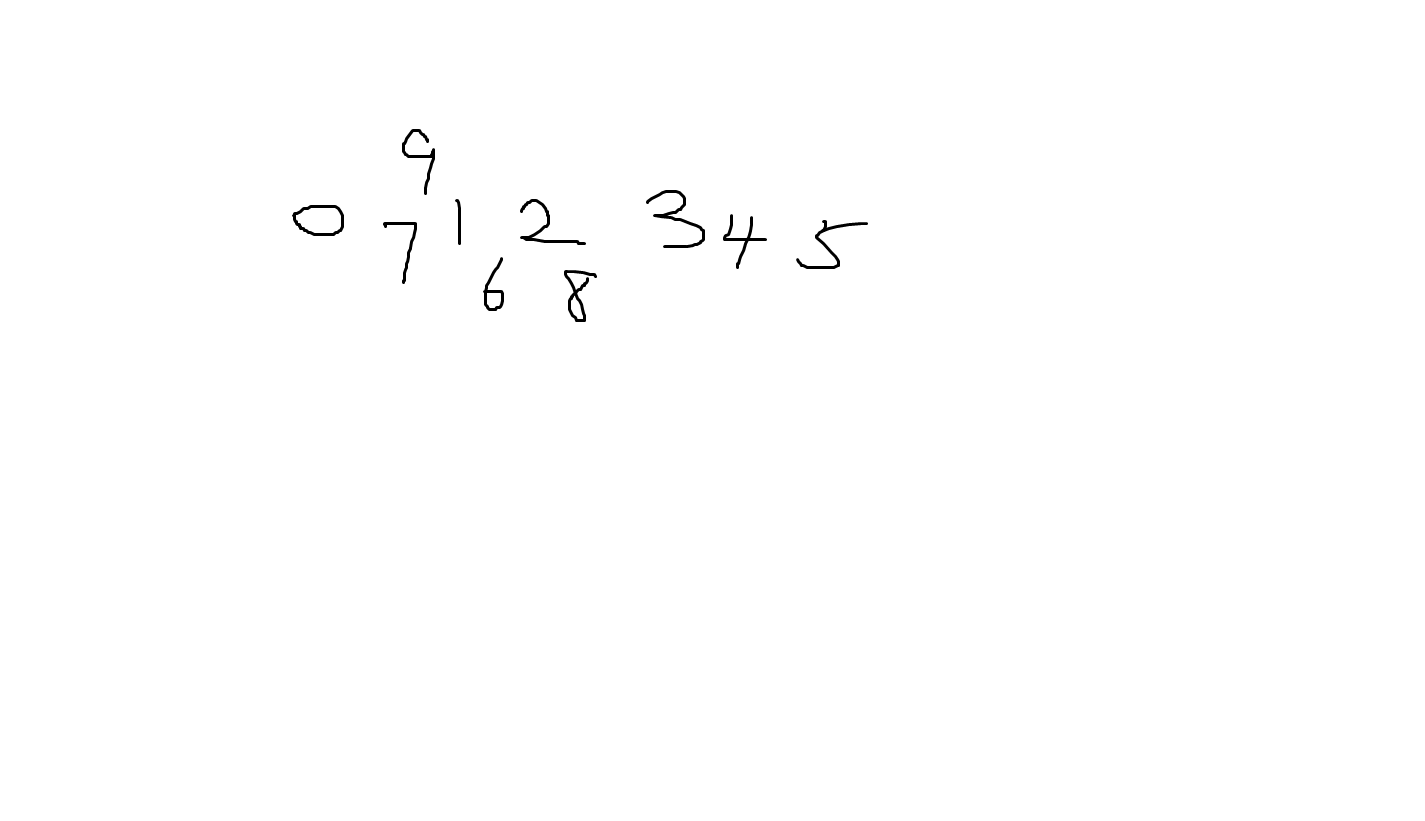 9
0 7 1 2 3 4 5
6 8